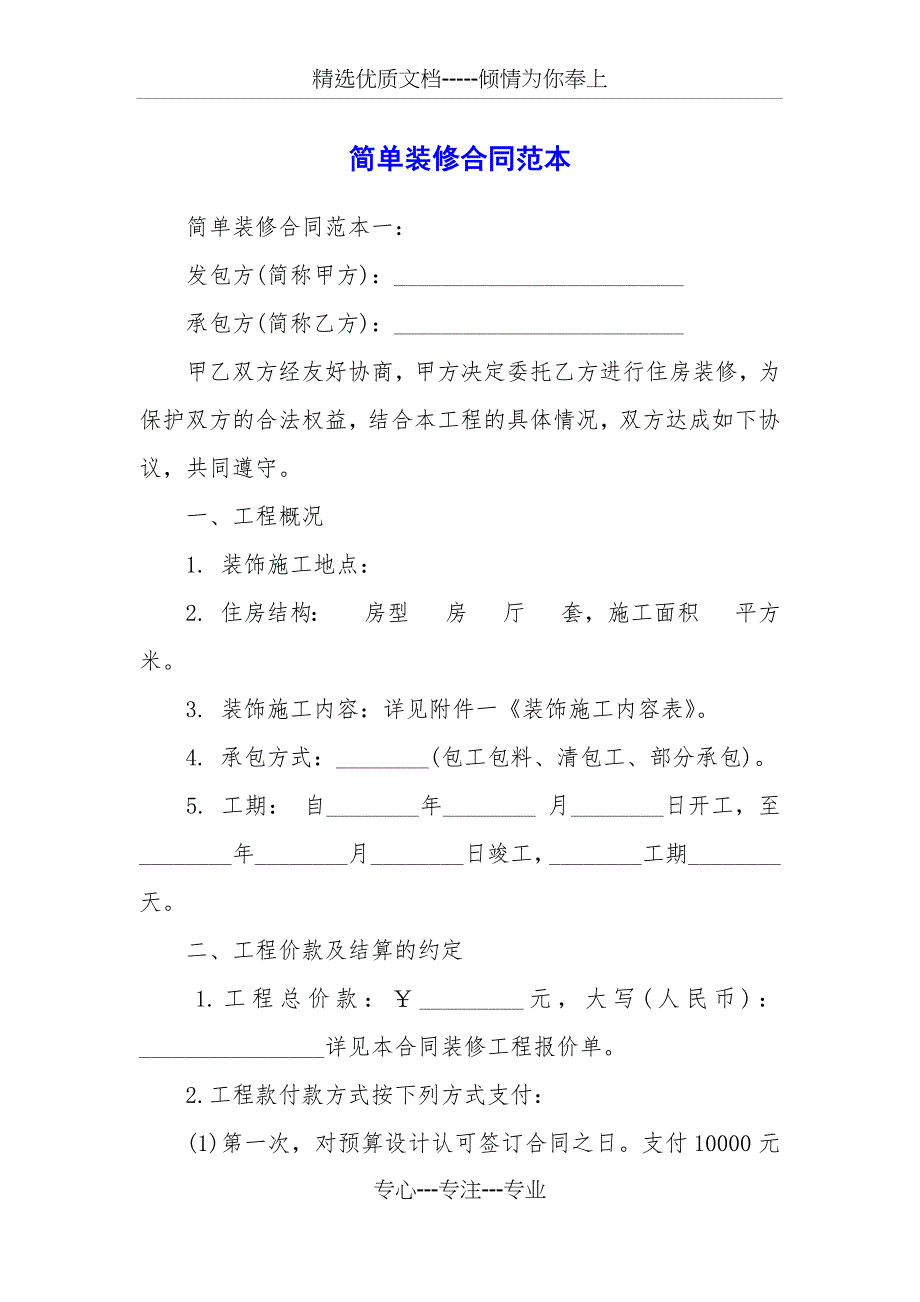 精选优质文档-----倾情为你奉上
简单装修合同范本
简单装修合同范本一：
发包方(简称甲方)：_________________________
承包方(简称乙方)：_________________________
甲乙双方经友好协商，甲方决定委托乙方进行住房装修，为
保护双方的合法权益，结合本工程的具体情况，双方达成如下协
议，共同遵守。
一、工程概况
1. 装饰施工地点：
2. 住房结构：　房型　房　厅　套，施工面积　平方
米。
3. 装饰施工内容：详见附件一《装饰施工内容表》。
4. 承包方式：________(包工包料、清包工、部分承包)。
5. 工期： 自________年________ 月________日开工，至
________年________月________日竣工，________工期________
天。
二、工程价款及结算的约定
1.工程总价款：￥_________元，大写(人民币)：
________________详见本合同装修工程报价单。
2.工程款付款方式按下列方式支付：
(1)第一次，对预算设计认可签订合同之日。支付10000元
专心---专注---专业